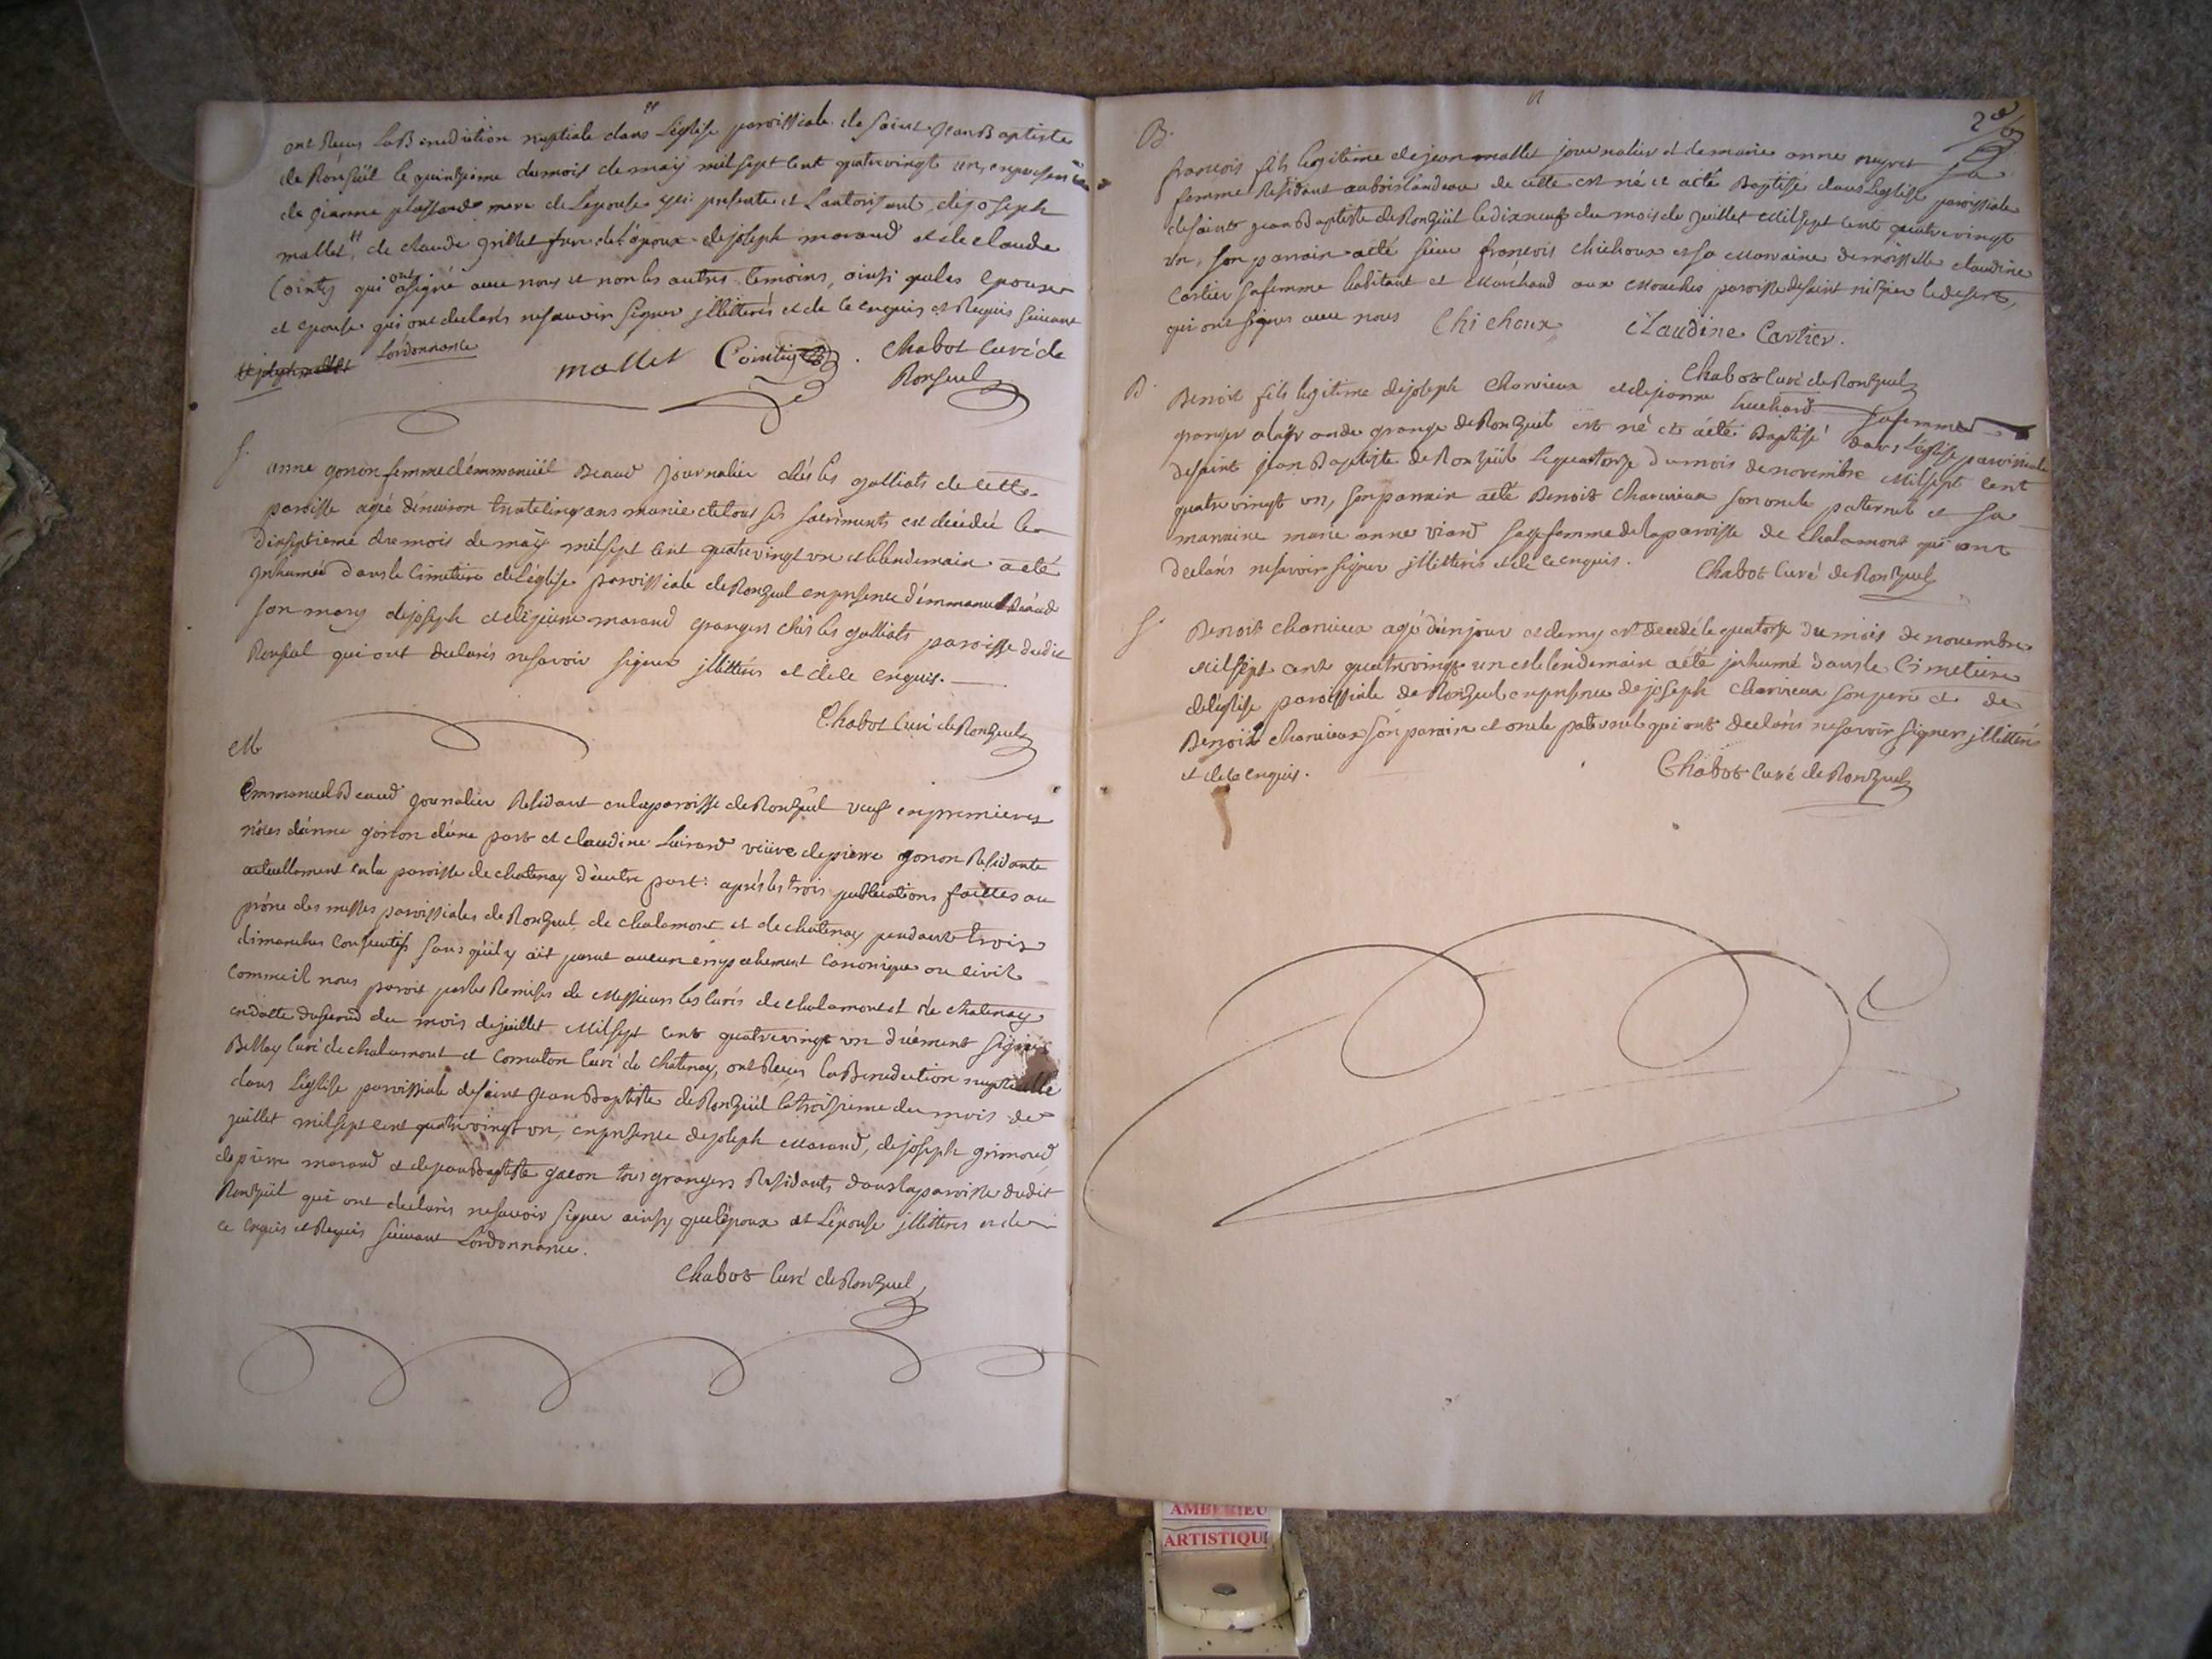 ont Recus La Benediction nuptiale dans Léglise paroissiale de saint Jean Baptiste
de Ronzüël le quinzième du mois de may mil sept cent quatre vingt un, en presence
de jeanne mere de Lepouse qui presente et Lautorisant, de joseph
mallet, de claude grillet de L'époux de joseph morand et de claude
Cointy qui ont signé avec nous et non les autres temoins, ainsi que les epoux
et epouse qui ont declarés ne savoir signer illitterés et de ce enquis et Requis suivant
Lordonnance
mallet Cointy Chabot curé de
Ronsuel
S.
anne gonon femme d'emmanuël Beaud journalier chés les galliats de cette
paroisse agée dénviron trente cinq ans munie de tous ses sacréments est décédée le
dixseptieme du mois de may mil sept cent quatre vingt un et le lendemain a eté
inhumée dans le Cimetiere de Léglise paroissiale de Ronzuel en presence d'emmanuel Beaud
son mary de joseph et de pierre morand grangers chés les galliats paroisse dudit
Ronsuel qui ont declarés ne savoir signer illittérés et de ce enquis.
Chabot Curé de Ronzuel
M
Emmanuel Beaud journalier Résidant en la paroisse de Ronzuel veuf en premieres
nôces d'anne gonon d'une part et claudine Luirard veüve de pierre gonon Résidante
actuellement en la paroisse de chatenay d'autre part: aprés les trois publications faittes au
prône des messes paroissiales de Ronzuel de chalamont et de chatenay pendant trois
dimanches consecutifs sans qu'il y ait parut aucun empechement canonique ou civil
comme il nous paroit par les Remises de Messieurs les curés de chalamont et de chatenay
en datte du second du mois de juillet Mil sept cent quatre vingt un duëment signés
Bellay curé de chalamont et comaton curé de chatenay, ont Recus la Benediction nuptialle
dans Léglise paroissiale de saint Jean Baptiste de Ronzüël le troisieme du mois de
juillet mil sept cent quatre vingt un, en presence de joseph morand, de joseph grimoud
de pierre morand et de jean Baptiste gacon tous grangers Résidants dans la paroisse dudit
Ronzüël qui ont declarés ne savoir signer ainsy que l'époux et L'épouse illitterés et de
ce enquis et Requis suivant Lordonnance.
Chabot curé de Ronzuel
B.
françois fils legitime de jean mallet journalier et de marie anne sa
femme Résidant au bois landeau de cette est né et a eté Baptisé dans leglise paroissiale
de saint jean Baptiste de Ronzüël le dixneuf du mois de juillet Mil sept cent quatre vingt
un, son parrain a eté sieur françois Chichoux et sa marraine demoiselle claudine
Cartier sa femme habitant et Marchand aux Mouches paroisse de saint nizier le desert,
qui ont signes avec nous Chichoux Claudine Cartier.
Chabot curé de Ronzuel
B
Benoit fils legitime de joseph Charvieux et de jeanne huchard sa femme
granger a la grande grange de Ronzuel est né et a eté Baptisé dans L'église paroissiale
de saint jean Baptiste de Ronzüël le quatorze du mois de novembre Mil sept cent
quatre vingt un, son parrain a eté Benoit Charvieux son oncle paternel et sa
marraine marie anne viard sage femme de la paroisse de chalamont qui ont
declarés ne savoir signer illitterés et de ce enquis.
Chabot Curé de Ronzuel
S.
Benoit charvieux agé d'un jour et demy est decedé le quatorze du mois de novembre
Mil sept cent quatre vingt un et le lendemain a eté inhumé dans le Cimetiere
de leglise paroissiale de Ronzuel en presence de joseph charvieux son pere et de
Benoit charvieux son parrain et oncle paternel qui ont declarés ne savoir signer illitterés
et de ce enquis.
Chabot curé de Ronzuel
AMBERIEU
ARTISTIQU